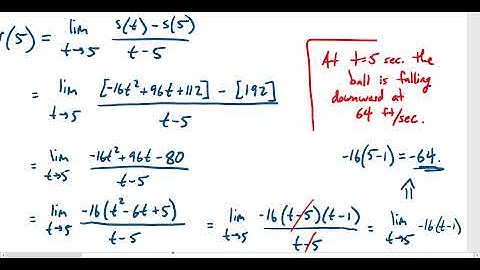 v(5) = lim t→5 s(t) - s(5) / t-5
= lim t→5 [-16t²+96t+112] - [192] / t-5
= lim t→5 -16t²+96t-80 / t-5
= lim t→5 -16(t²-6t+5) / t-5 = lim t→5 -16(t-5)(t-1) / t-5 = lim t→5 -16(t-1)
⇑
-16(5-1) = -64.
At t=5 sec. the
ball is falling
downward at
64 ft/sec.